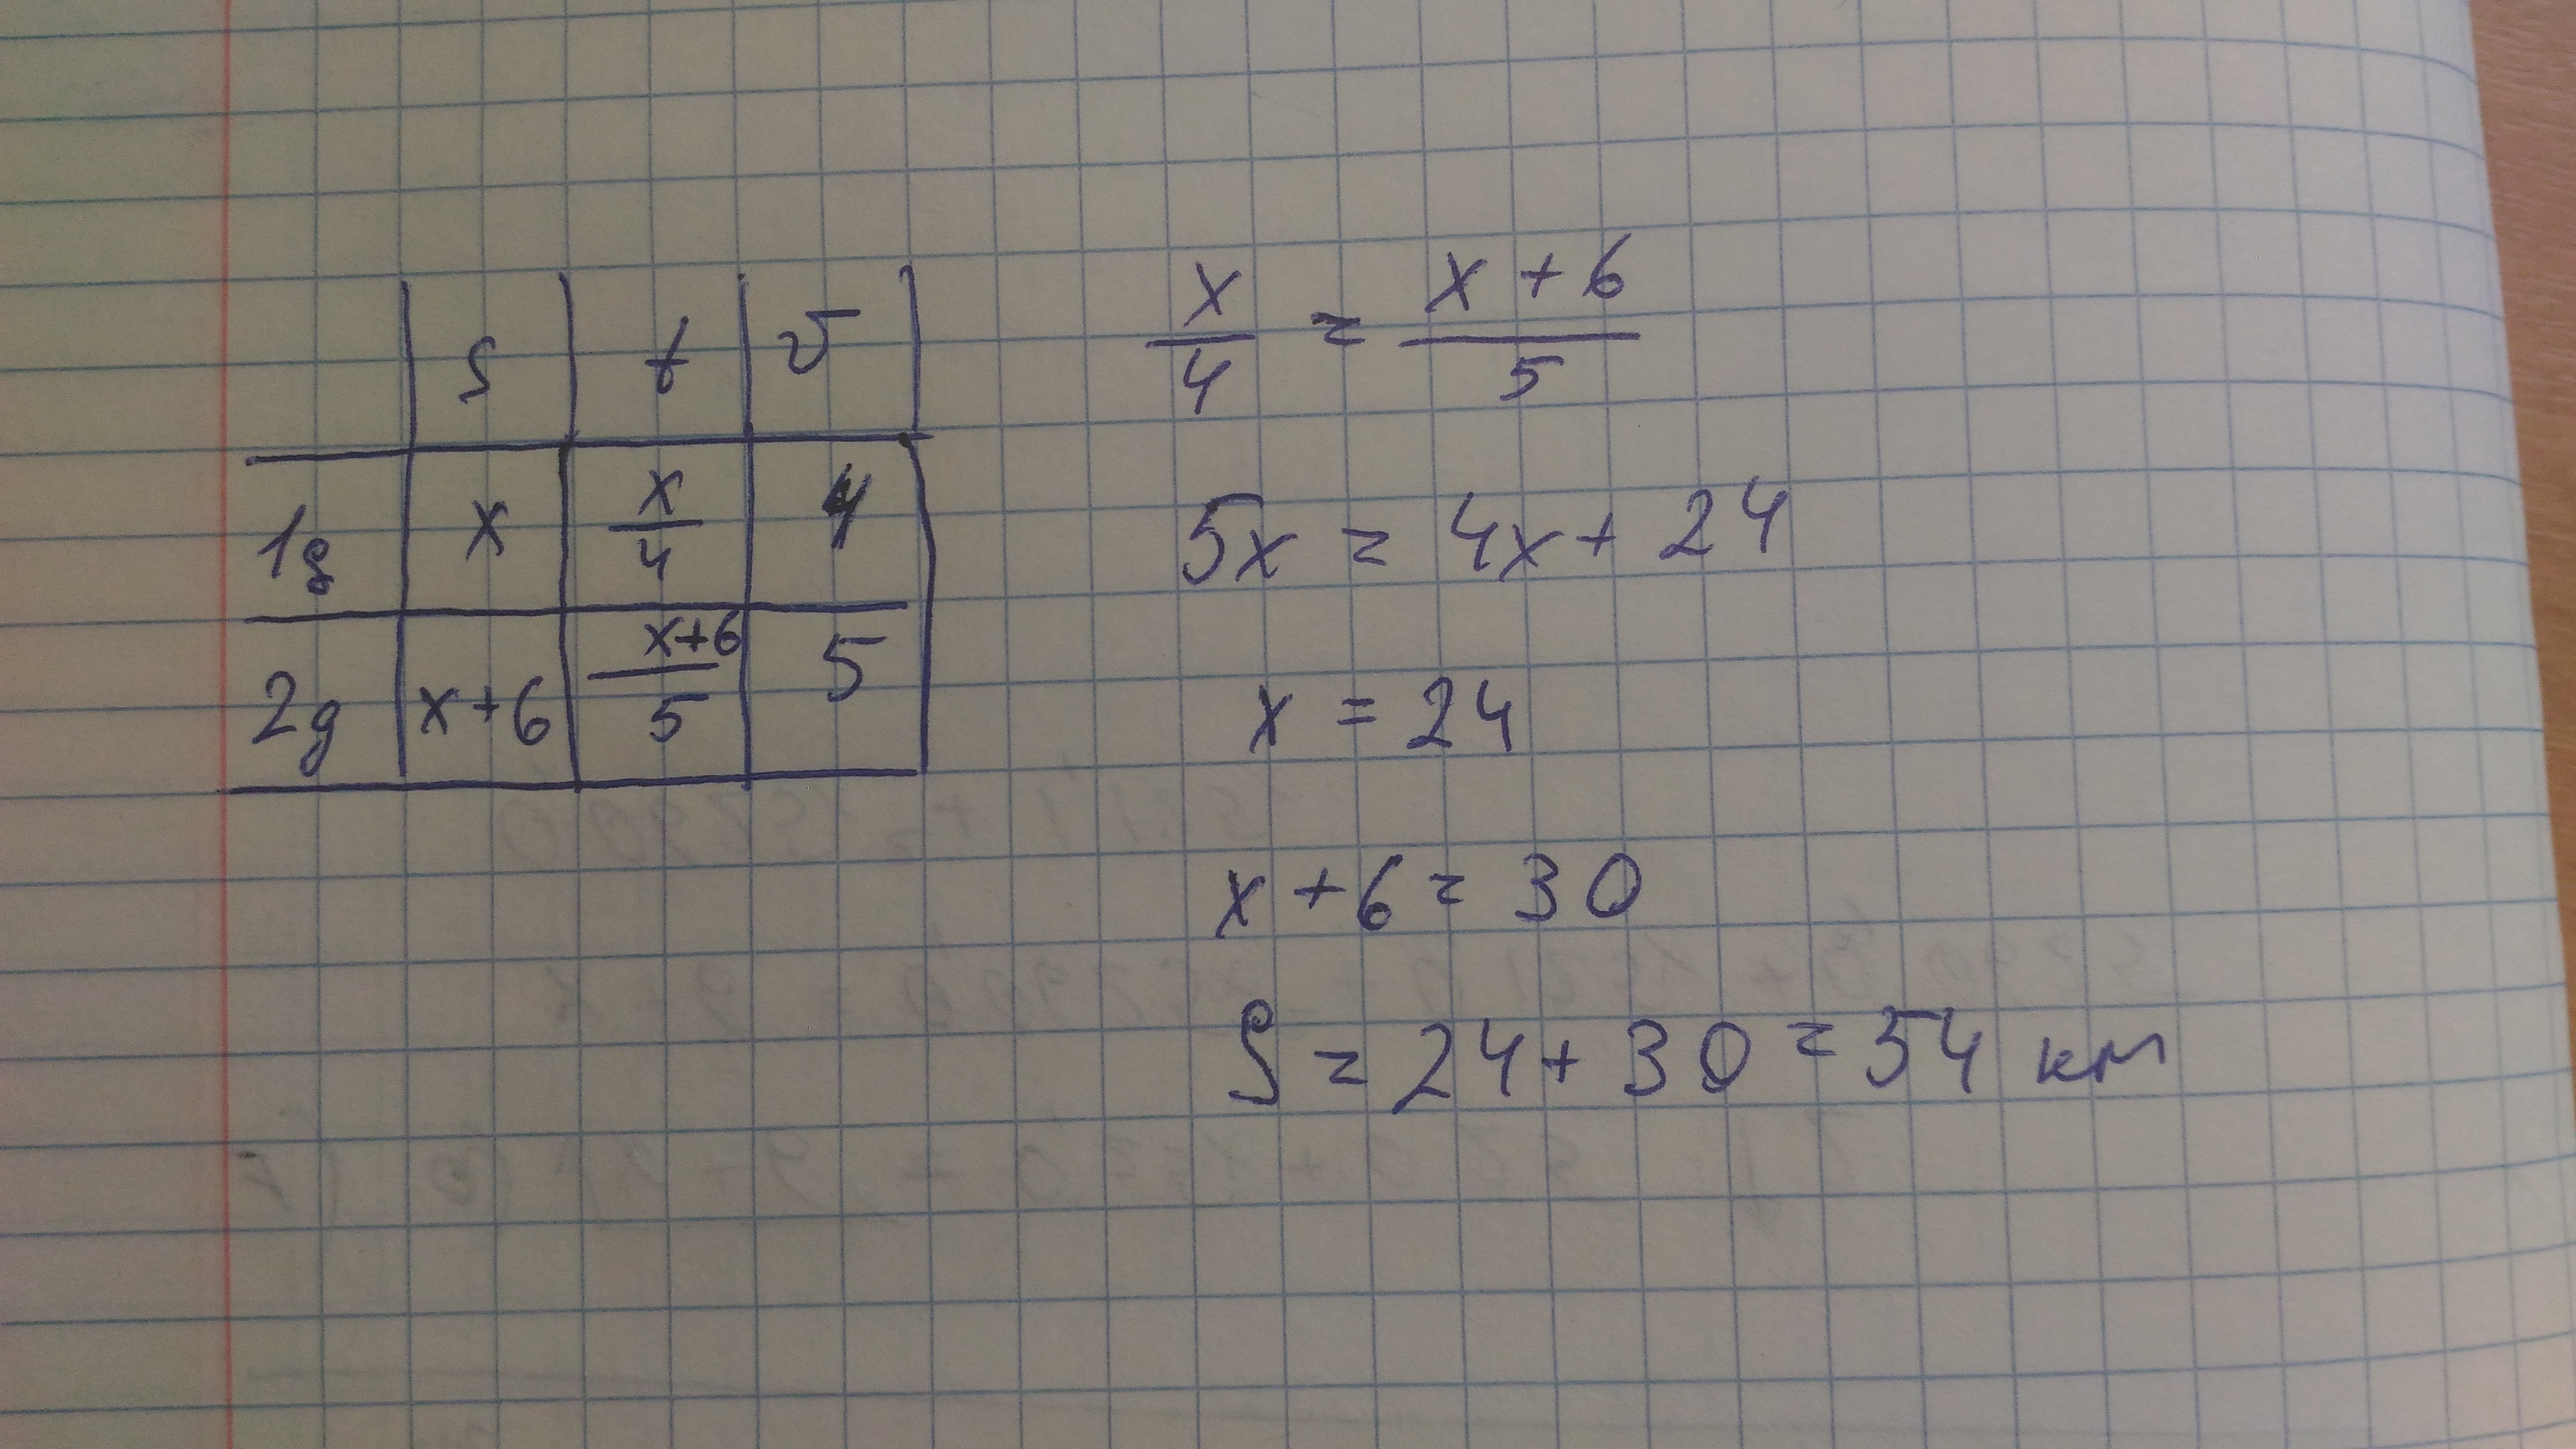 s t v
1g x x/4 4
2g x+6 x+6/5 5
x/4 = x+6/5
5x = 4x + 24
x = 24
x + 6 = 30
S = 24 + 30 = 54 км